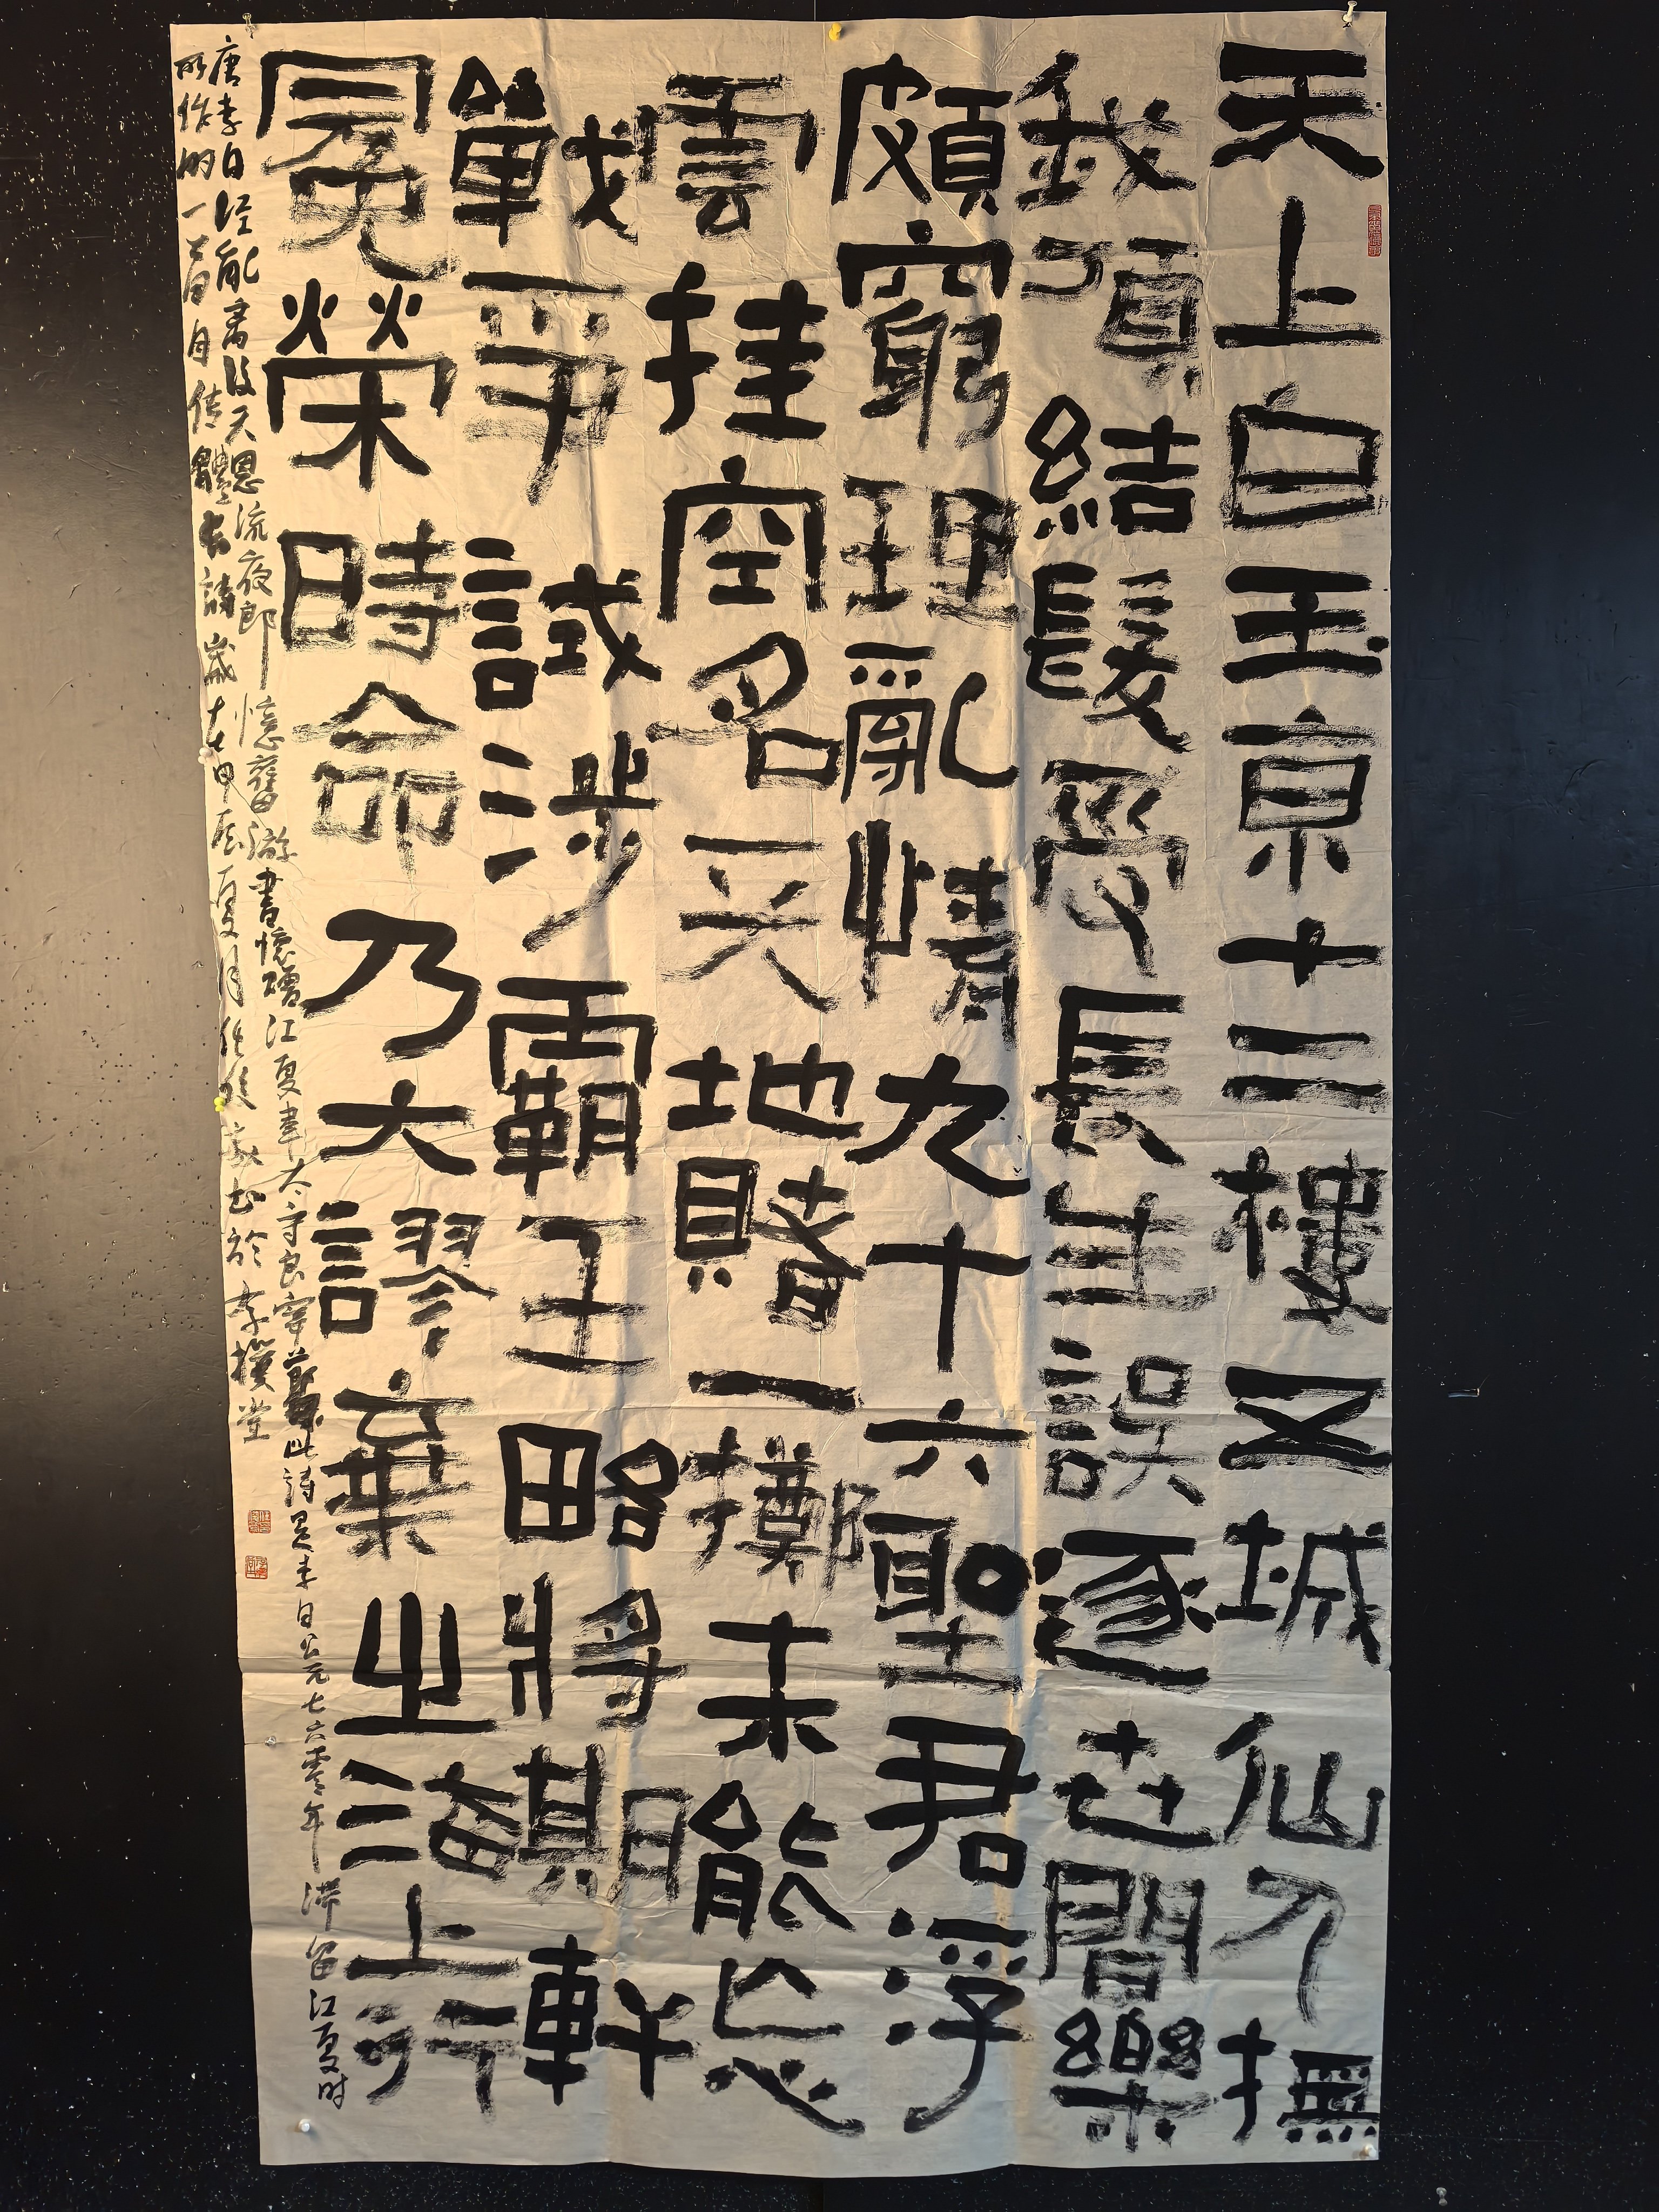 天上白玉京十二樓五城仙人撫
我頂結髮受長生誤逐世間樂
頗窮理亂情九十六聖君浮
雲挂空名天地賭一擲未能忘
戰爭試涉霸王略將期軒
冕榮時命乃大謬棄之海上行
唐李白經亂离後天恩流夜郎憶舊游書懷贈江夏韋太守良宰 此詩是李白公元七六零年滯留江夏时
所作的一首自传體長詩歲